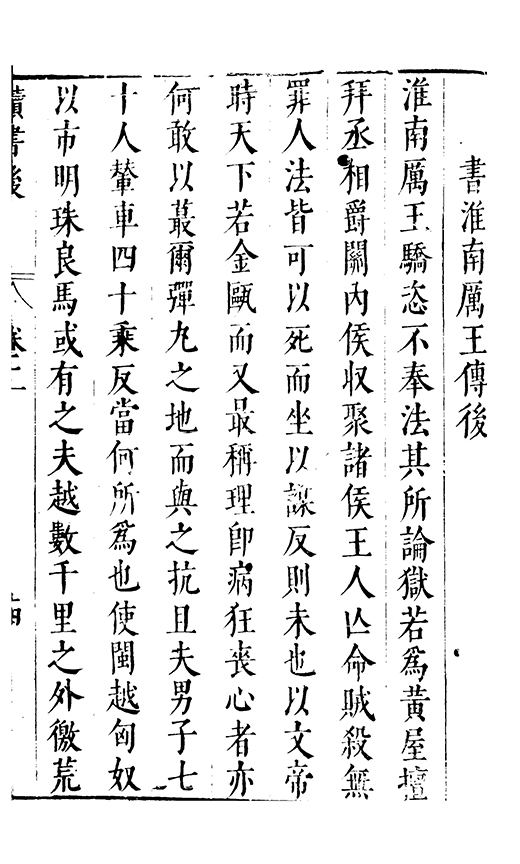 書淮南厲王傳後
淮南厲王驕恣不奉法其所論獄若爲黃屋擅
拜丞相爵關內侯収聚諸侯王人亾命賊殺無
罪人法皆可以死而坐以謀反則未也以文帝
時天下若金甌而又最稱理卽病狂喪心者亦
何敢以蕞爾彈丸之地而與之抗且夫男子七
十人輂車四十乘反當何所爲也使閩越匈奴
以市明珠良馬或有之夫越數千里之外徼荒
讀書後
卷二
十四